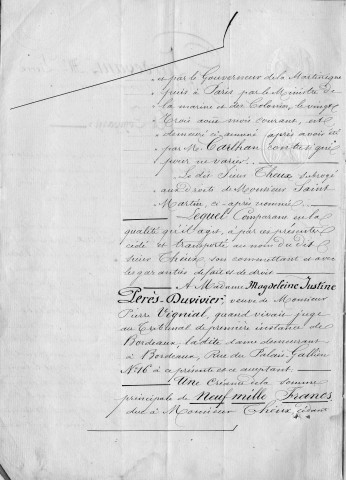 « et par le Gouverneur de la Martinique
« puis à Paris par le Ministre de
« la marine et des Colonies, le vingt
« trois août mois courant, est
« demeuré ci annexé après avoir été
« par Mr. Carthau contresigné
pour ne varier.
Le dit Sieur Theux subrogé
aux droits de Monsieur Saint
Martin, ci après nommé.
Lequel Comparant en la
qualité qu'il agit, a par ces présentes
cédé et transporté au nom du dit
Sieur Theux, son commettant et avec
les garanties de fait et de droit
A Madame Magdeleine Justine
Perès-Duvivier, veuve de Monsieur
Pierre Vignial, quand vivait juge
au Tribunal de première instance de
Bordeaux, la dite dame demeurant
à Bordeaux, Rue du Palais Gallien
No. 16 à ce présente et ce acceptant.
Une Créance de la somme
principale de Neuf mille Francs,
due à Monsieur Theux, cédant